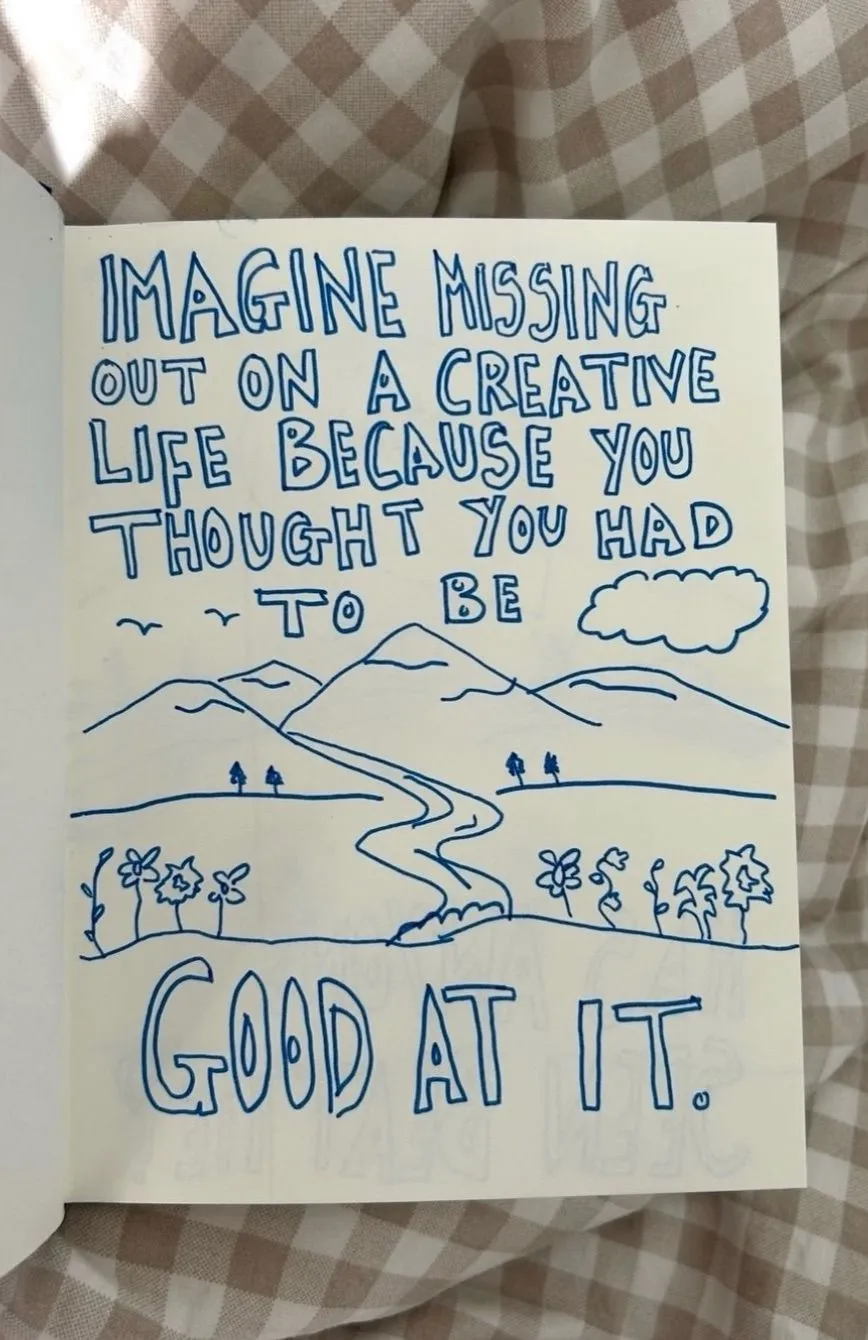 IMAGINE MISSING
OUT ON A CREATIVE
LIFE BECAUSE YOU
THOUGHT YOU HAD
TO BE
GOOD AT IT.